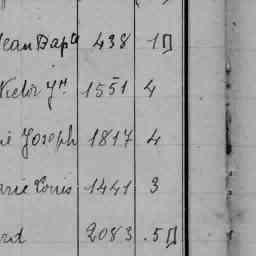 Jean Bapte 438 1
Victor Jn 1551 4
Joseph 1817 4
arie Louis 1441 3
rd 2083 .5